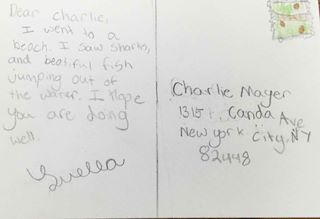 Dear Charlie,
I went to a
beach. I saw sharks,
and beatiful fish
jumping out of
the water. I Hope
you are doing
well.
Charlie Mayer
Canda Ave
New york City, NY
82448